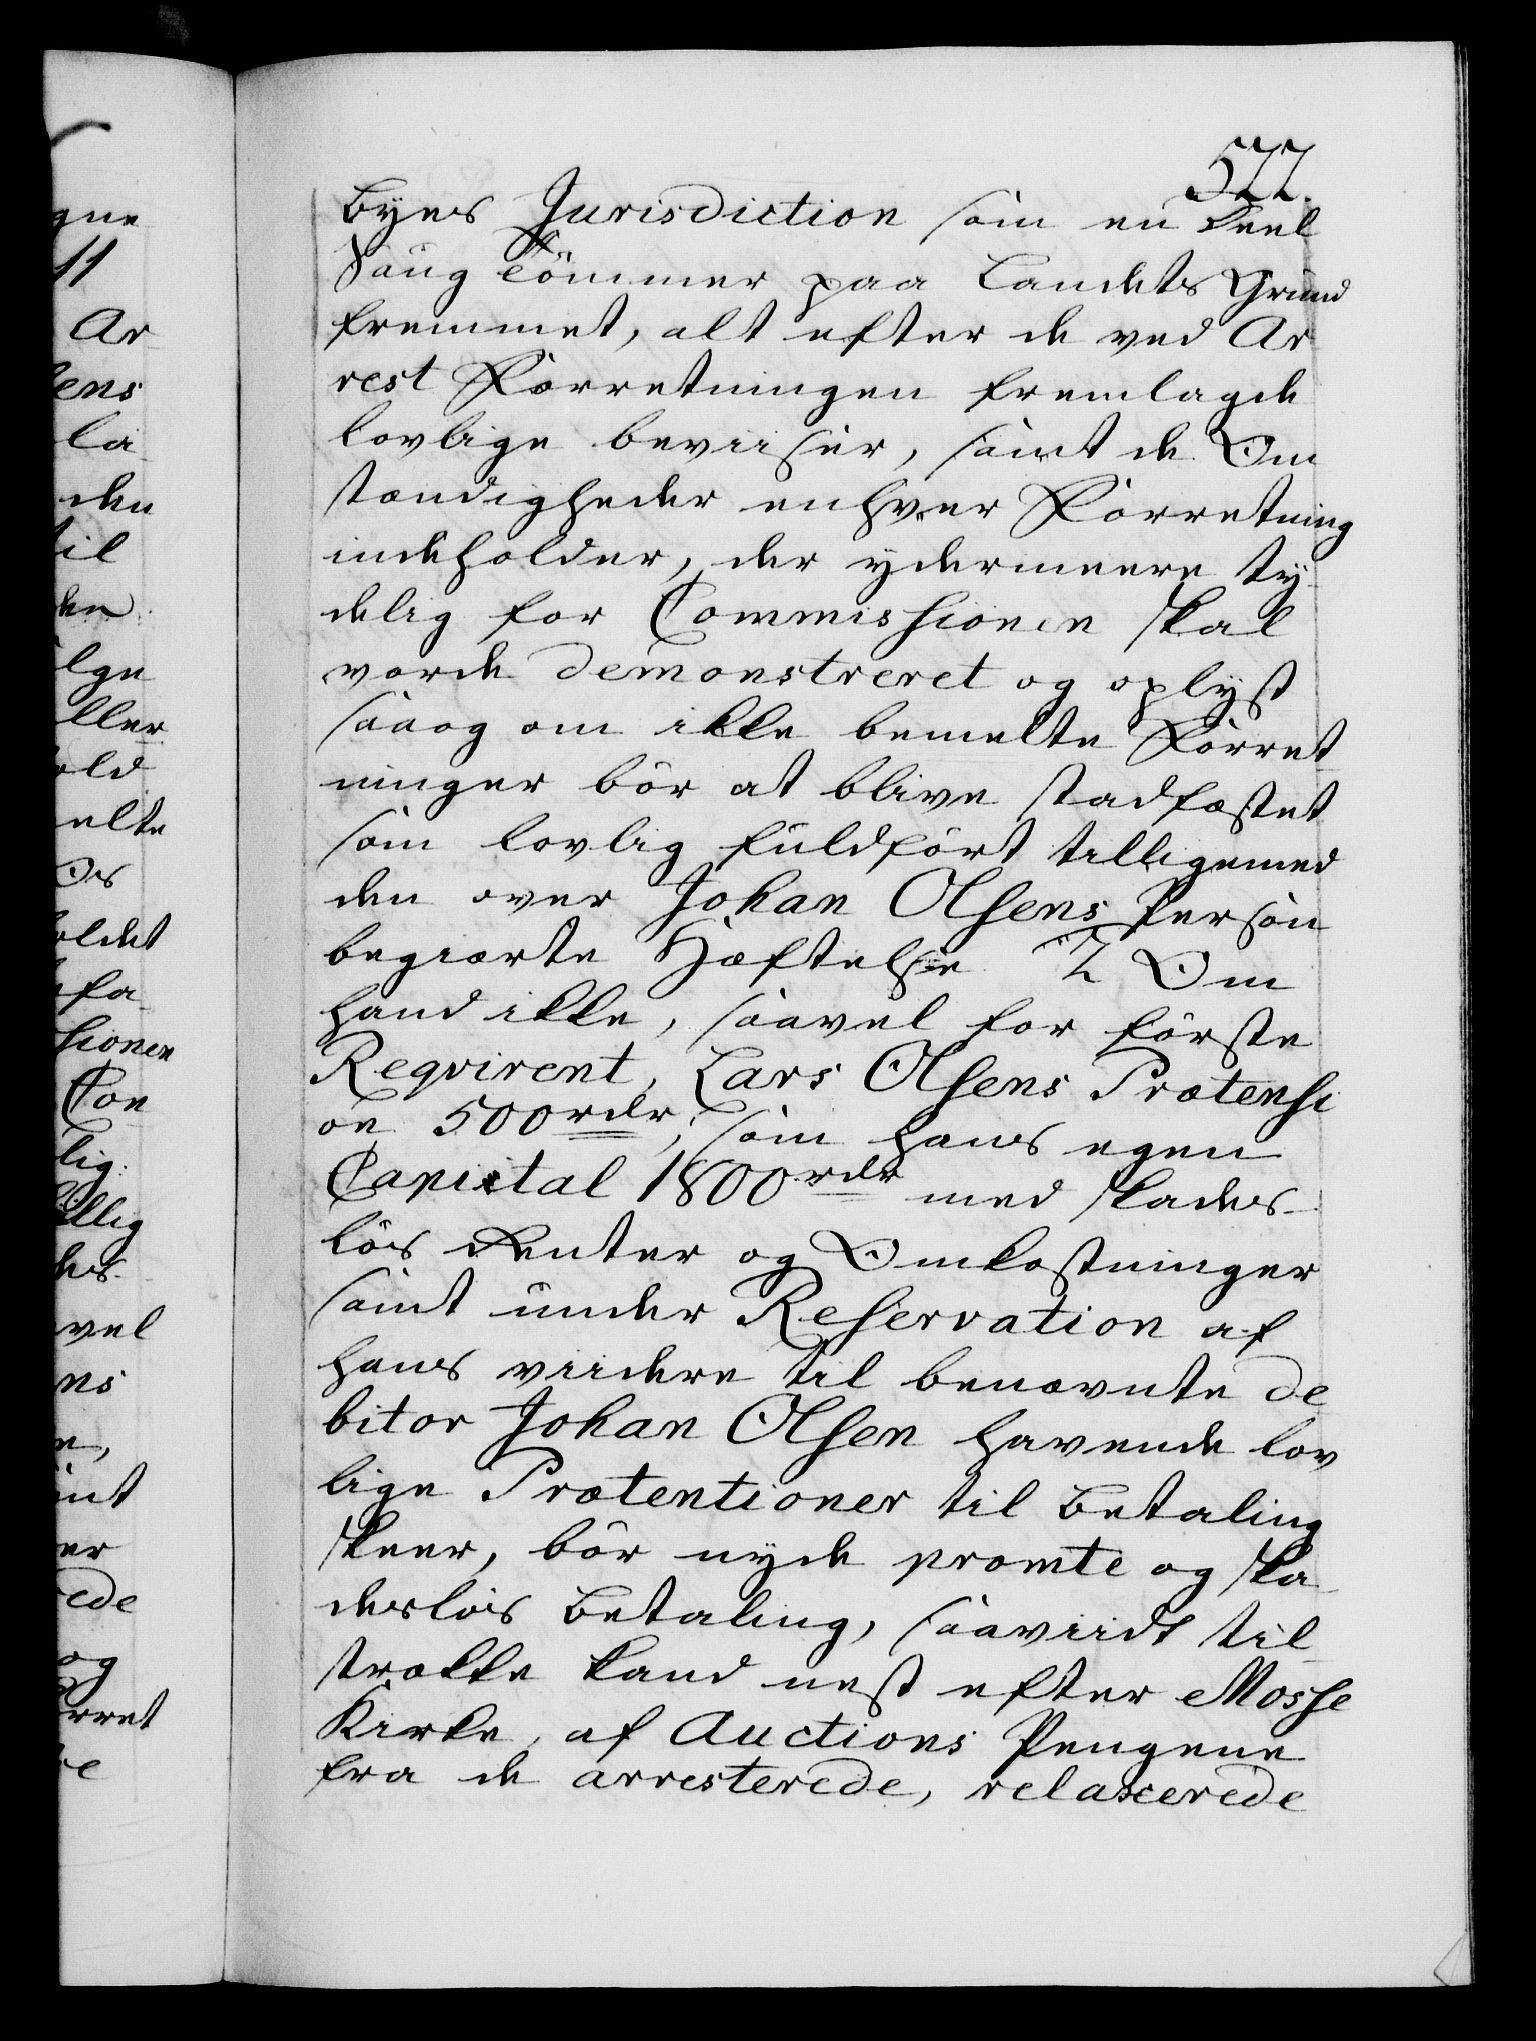 522.
Byens Jurisdiction som en deel
Saug Tömmer paa Landets Grund
fremmet, alt efter de ved Ar
rest Forretningen fremlagde
lovlige beviiser, samt de Om
stændigheder enhver Forretning
indeholder, der ydermeere ty
delig for Commissionen skal
vorde demonstreret og oplyst
saaog om ikke bemelte Forret
ninger bör at blive stadfæstet
som lovlig fuldfört tilligemed
den over Johan Olsens Person
begiærte Hæftelse 2 Om
hand ikke, saavel for förste
Reqvirent, Lars Olsens Prætensi
on 500 rdr, som hans egen
Capital 1800 rdr med skades-
lös Renter og Omkostninger
samt under Reservation af
hans viidere til benævnte de
bitor Johan Olsen havende lov
lige Prætentioner til Betaling
skeer, bör nyde promte og ska
deslös Betaling, saaviidt til-
strække kand nest efter Mosse
Kirke, af Auctions Pengene
fra de arresterede, relaxerede